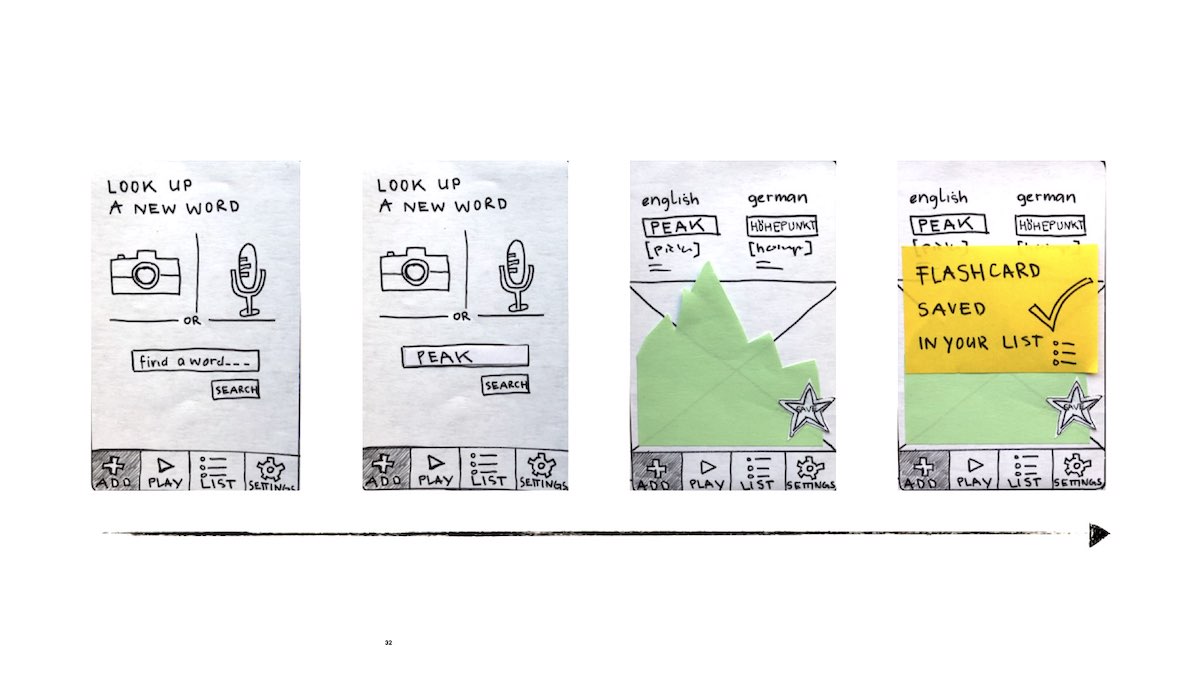 LOOK UP
A NEW WORD
OR
find a word___
SEARCH
ADD PLAY LIST SETTINGS
LOOK UP
A NEW WORD
OR
PEAK
SEARCH
ADD PLAY LIST SETTINGS
english german
PEAK HÖHEPUNKT
SAVE
ADD PLAY LIST SETTINGS
english german
PEAK HÖHEPUNKT
FLASHCARD
SAVED
IN YOUR LIST
SAVE
ADD PLAY LIST SETTINGS
32